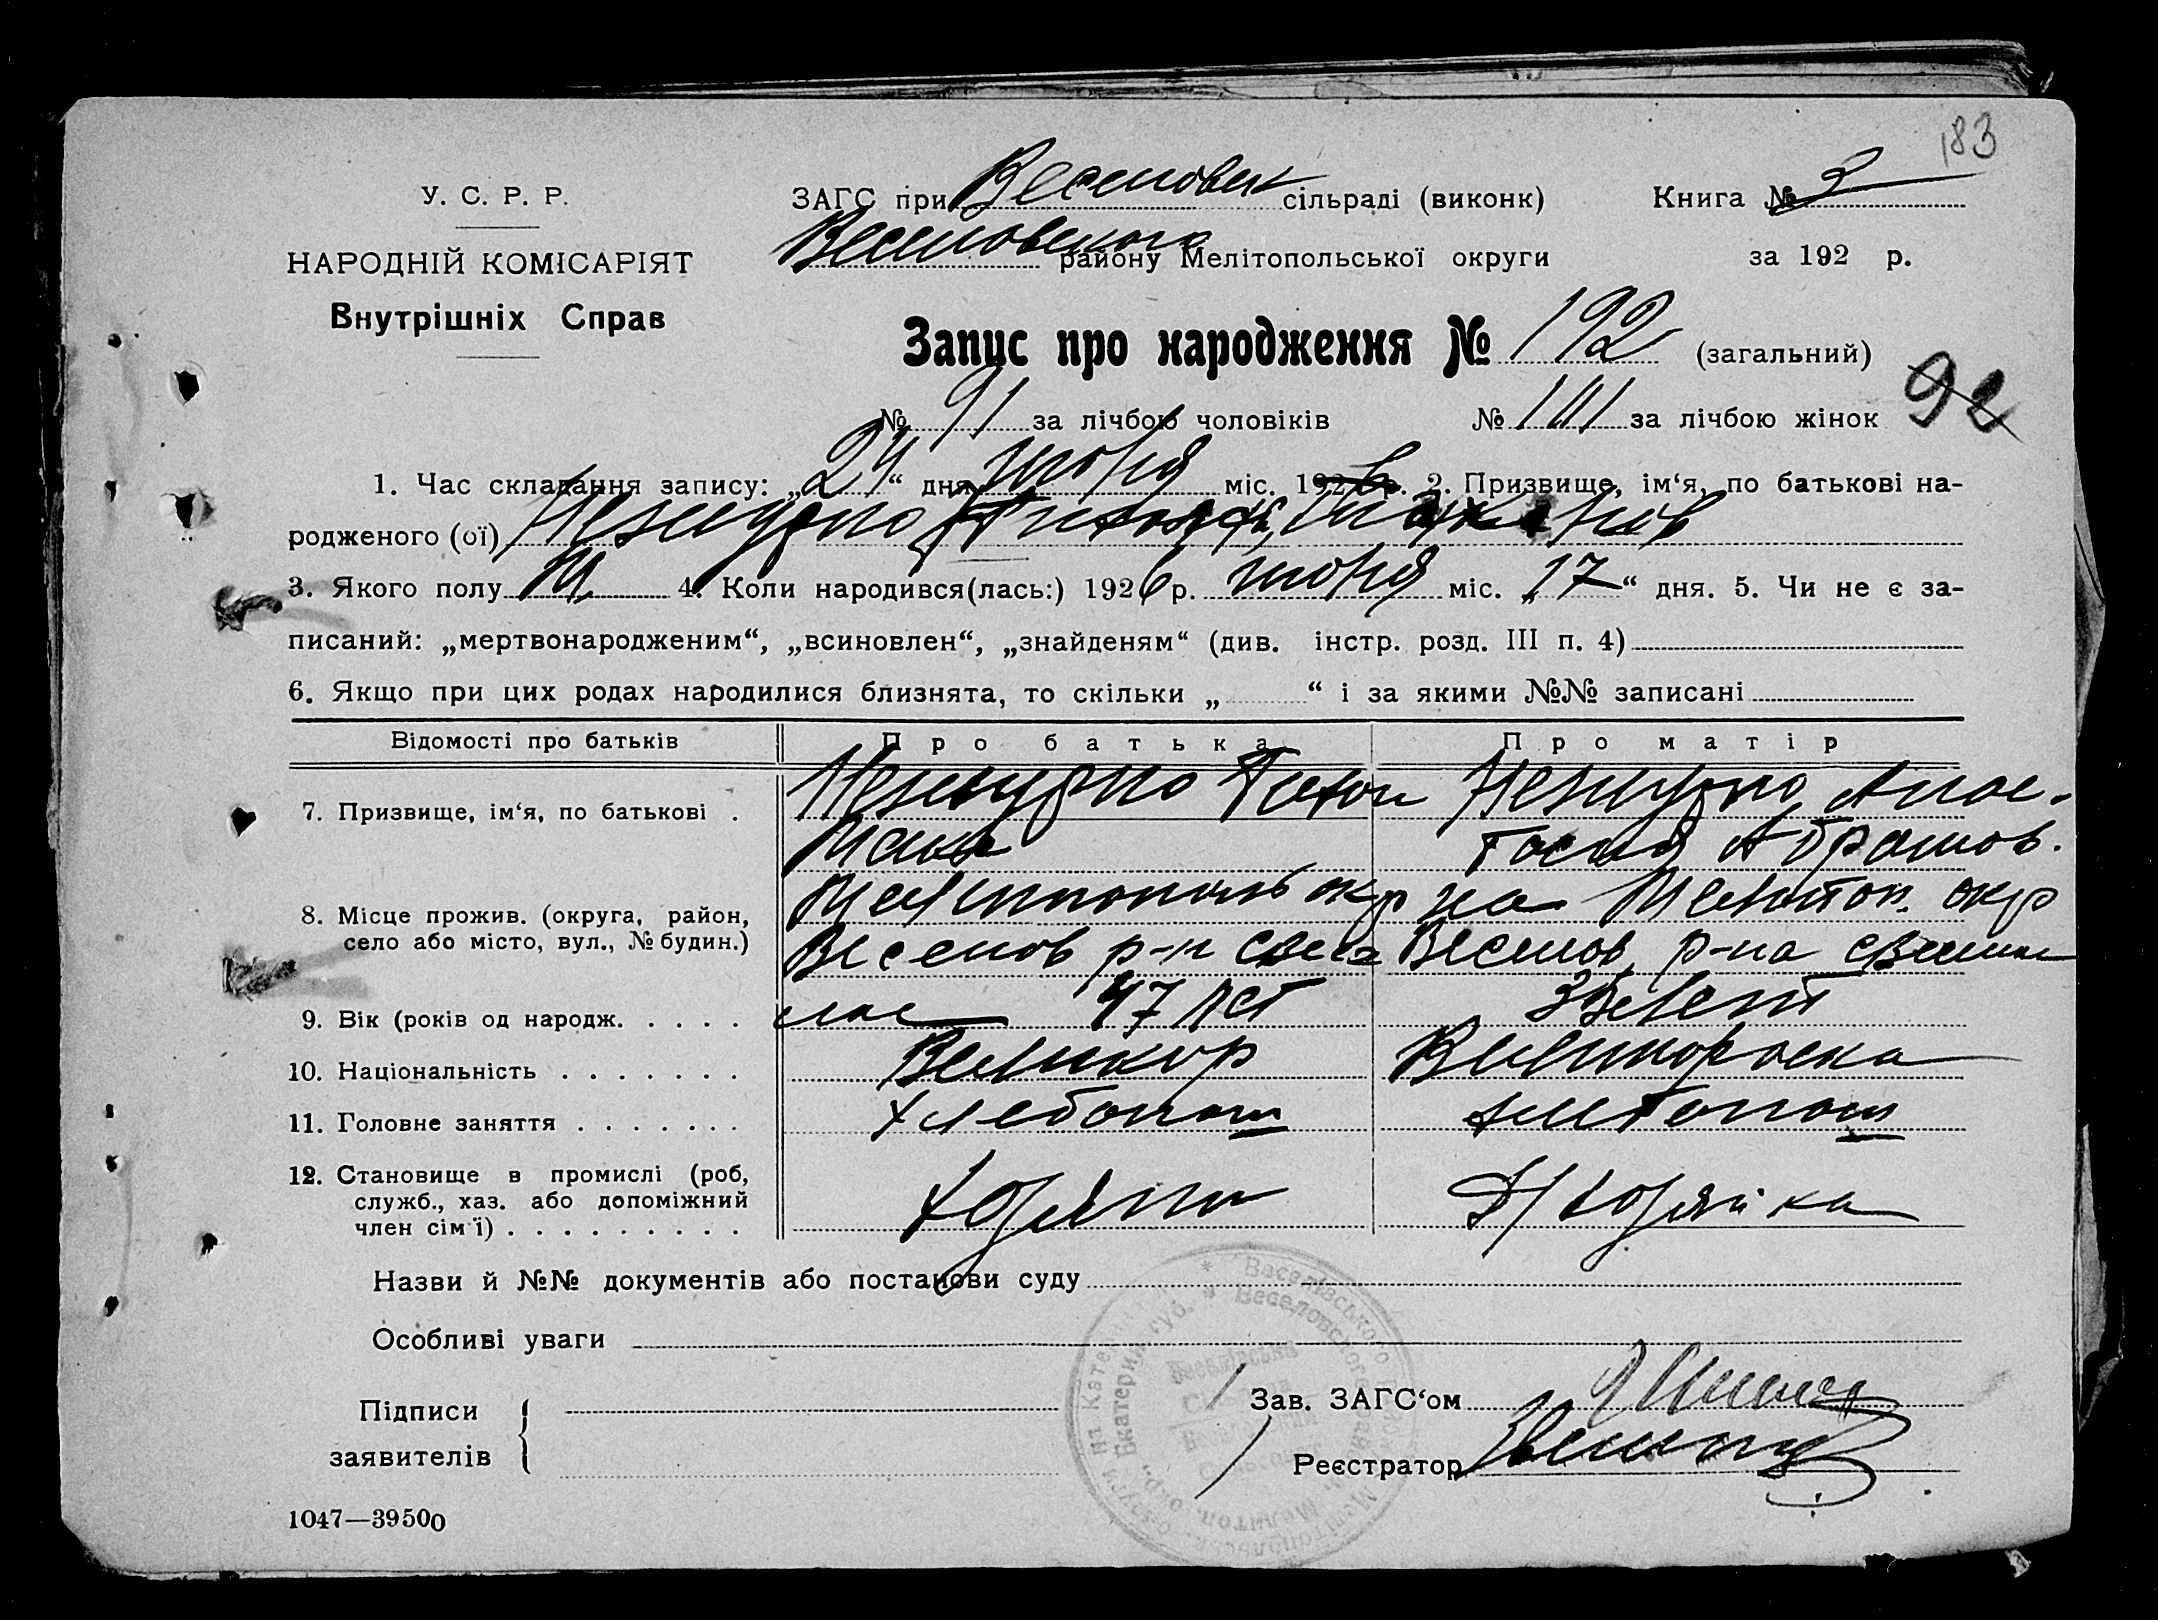 183
У. С. Р. Р.
НАРОДНІЙ КОМІСАРІЯТ
Внутрішніх Справ
ЗАГС при Веселовск сільраді (виконк) Книга № 3
Веселовского району Мелітопольської округи за 192 р.
Запис про народження № 192 (загальний)
№ 91 за лічбою чоловіків № 101 за лічбою жінок 92
1. Час складання запису: „24“ дня июня міс. 1926 р. 2. Призвище, ім‘я, по батькові на-
родженого (ої)
3. Якого полу м. 4. Коли народився(лась:) 1926 р. июня міс. „17“ дня. 5. Чи не є за-
писаний: „мертвонародженим“, „всиновлен“, „знайденям“ (див. інстр. розд. III п. 4)
6. Якщо при цих родах народилися близнята, то скільки „ “ і за якими №№ записані
Відомості про батьків Про батька Про матір
7. Призвище, ім‘я, по батькові . Тихон Анас-
тасия Абрамов.
8. Місце прожив. (округа, район, Мелитополь окр на Мелитоп. окр
село або місто, вул., № будин.) Веселов р-н Веселов р-на
9. Вік (років од народж. . . . . 47 лет лет
10. Національність . . . . . . . Великор Великороска
11. Головне заняття . . . . . . . хлебопаш хлебопаш
12. Становище в промислі (роб,
служб., хаз. або допоміжний
член сім‘ї) . . . . . . . . . хозяин Д/хозяйка
Назви й №№ документів або постанови суду
Особливі уваги
Підписи
заявителів
Зав. ЗАГС‘ом
Реєстратор
1047—39500